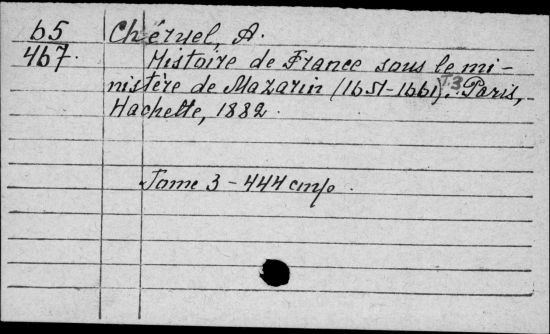 65 Chéruel, A.
467. Histoire de France sous le mi-
nistère de Mazarin (1651-1661). T.3 Paris,
Hachette, 1882.
Tome 3 - 444 стр.